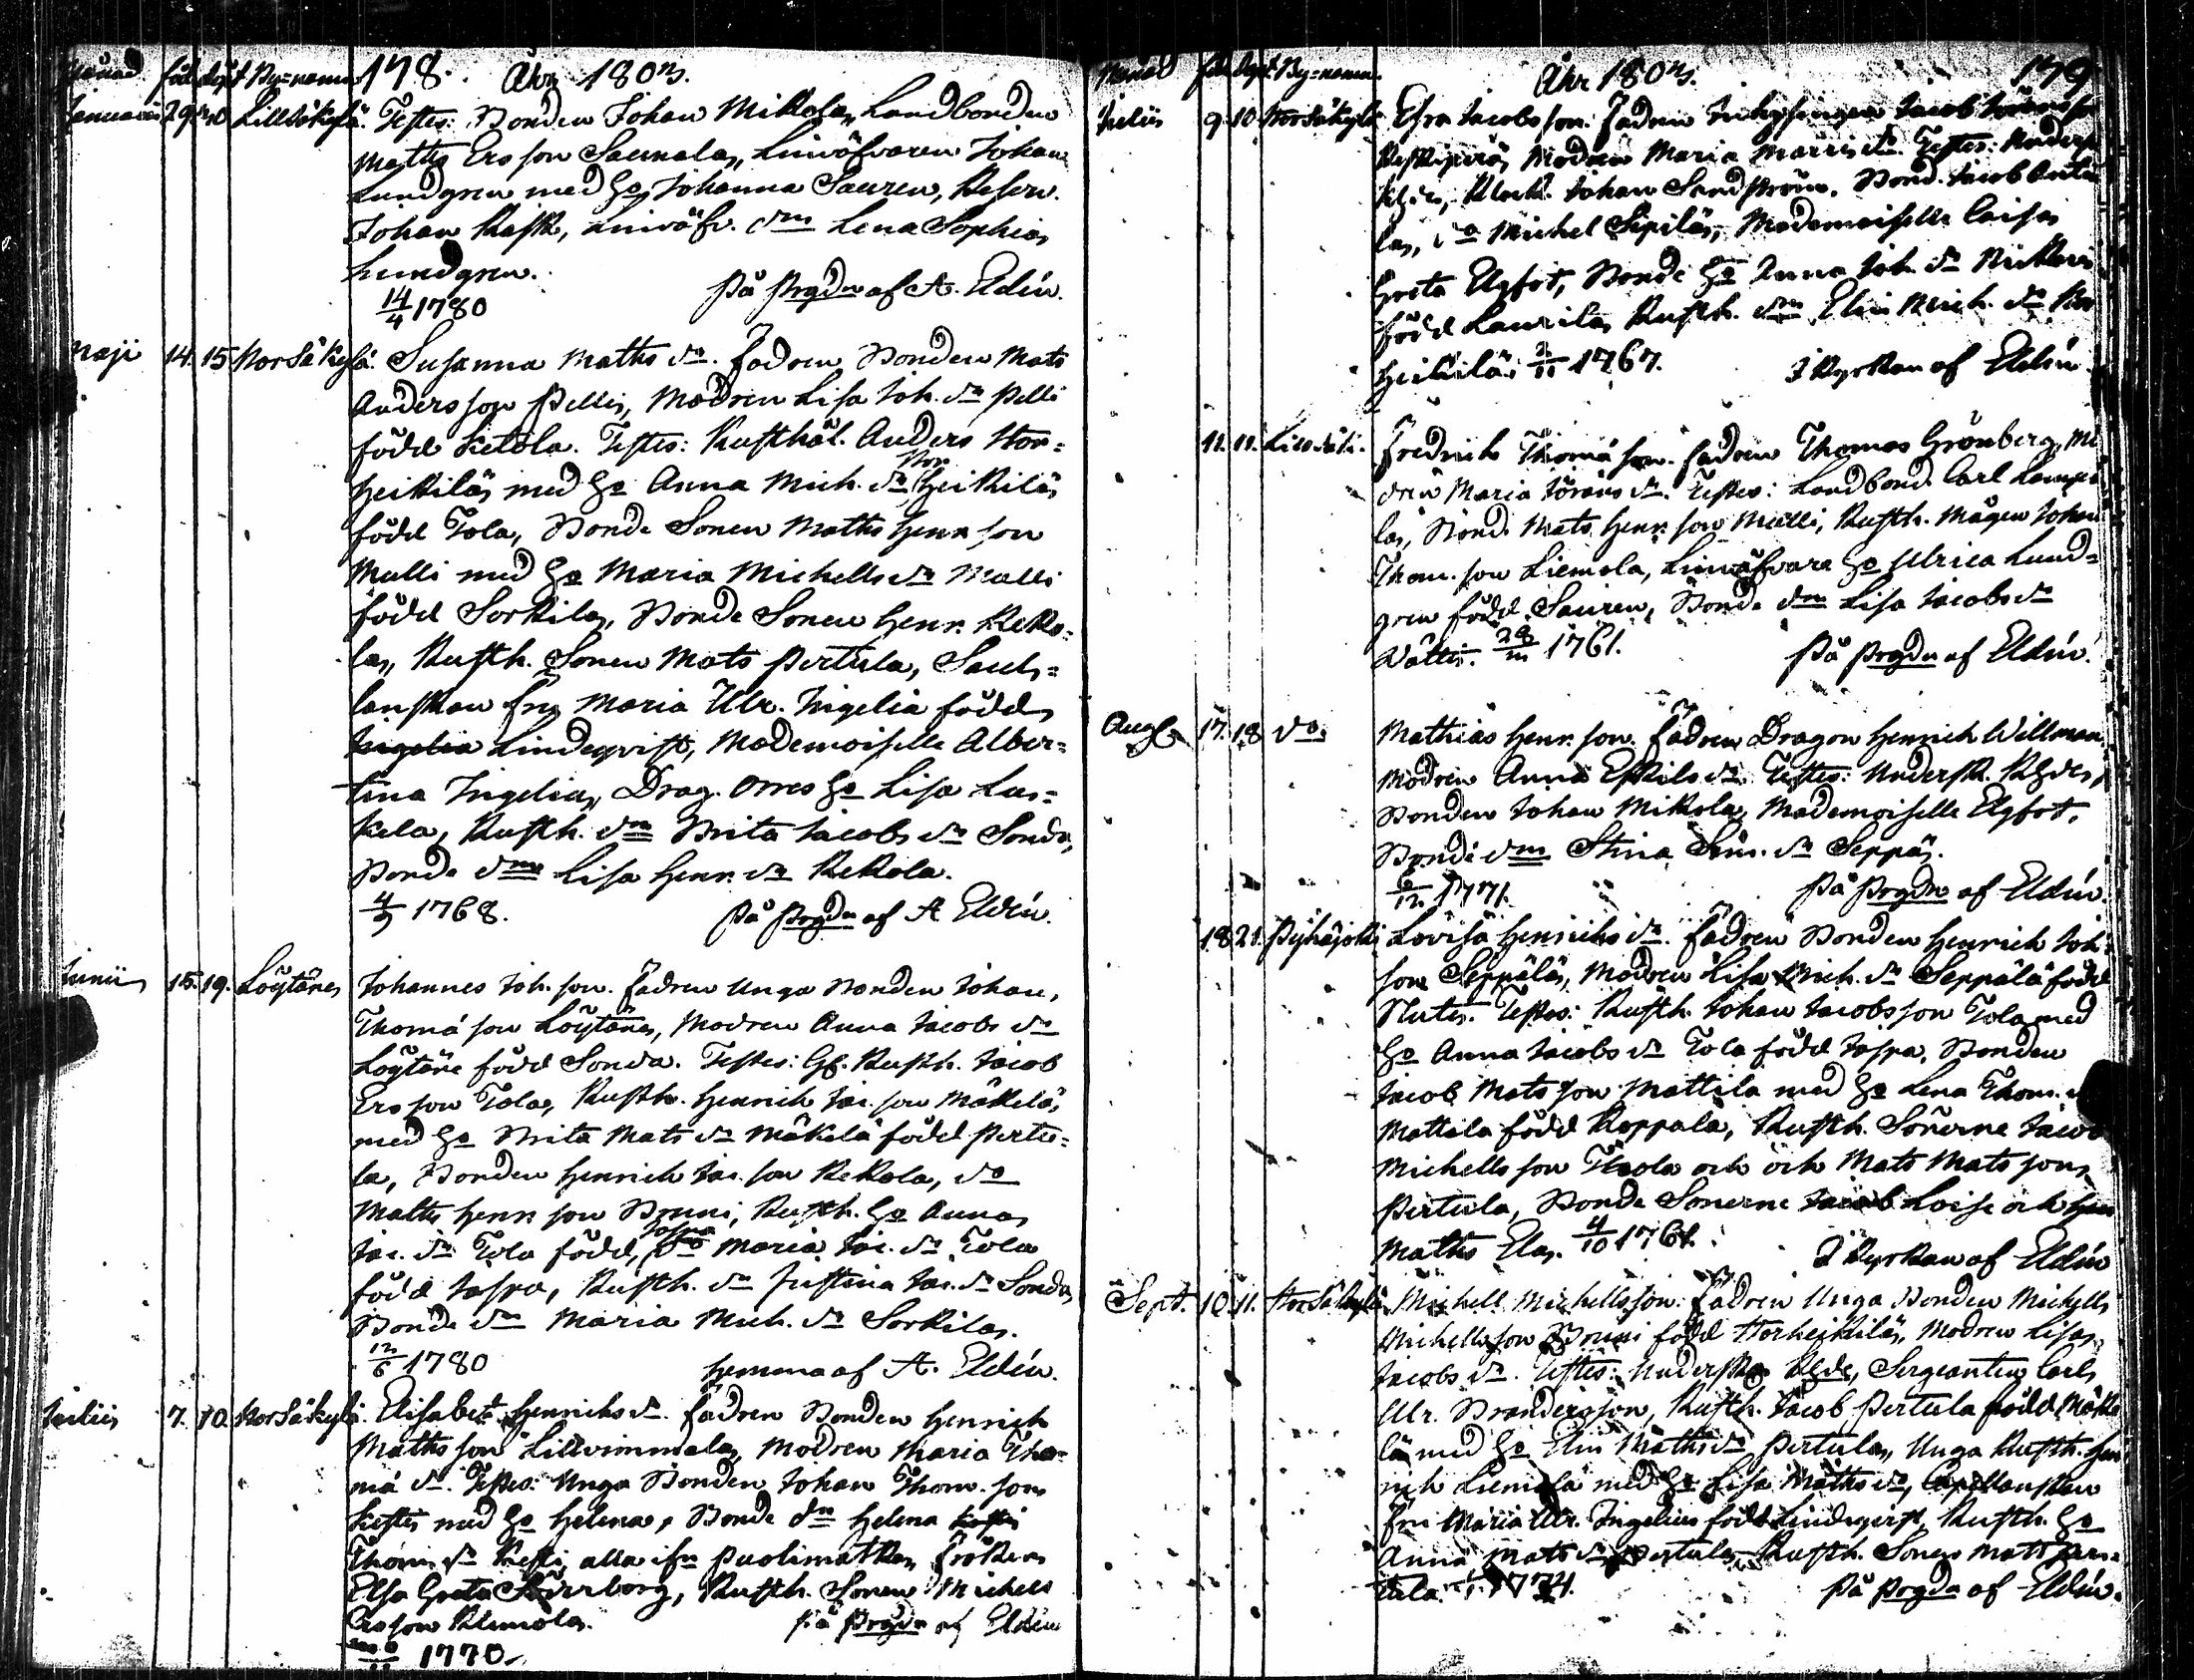 Månad född döpt By=namn 178. Åhr 1803.
Januarii 29 Lillsäkylä. Testes: Bonden Johan Mikkola, Landbonden
Matts Ersson Saunala, Linväfvaren Johan
Lundgren med ho Johanna Sauren, Reserv.
Johan Rask, Linväfv. drn Lena Sophia
Lundgren.
14/4 1780 På Prgdn af A. Eldín.
Maji 14. 15 Stor Säkylä. Susanna Matts dr. Fadren Bonden Mats
Andersson Pelli, Modren Lisa Joh. dr Pelli
född Ketola. Testes: Rusthål. Anders Stor=
heikkilä med Ho Anna Mich. dr Stor heikkilä
född Tola, Bonde Sonen Matts Henr. son
Mulli med Ho Maria Michells dr Mulli
född Sorkila, Bonde Sonen Henr. Rekko=
la, Rusth. Sonen Mats Pertula,
Fru Maria Ulr. Ingelia född
Ingelia Lindeqvist, Mademoiselle Alber=
tina Ingelia, Drag. Orres Ho Lisa Lus=
kela, Rusth. drn Brita Jacobs dr Sonda,
Bonde drn Lisa Henr. dr Rekola.
4/9 1768. På Prgdn af A Eldín.
Junii 15. 19. Löytäne Johannes Joh. son. Fadren Unga Bonden Johan
Thomæ son Löytäne, Modren Anna Jacobs dr
Löytäne född Sonda. Testes: Gl. Rusth. Jacob
Ersson Tola, Rusth. Henrich Jac. son Mäkelä
med Ho Brita Mats dr Mäkelä född Pertu=
la, Bonden Henrich Jac. son Rekola, do
Matts Henr. son Bruni, Rusth. Ho Anna
Jac. dr Tola född Jaspa, do Maria Jac. dr Tola
född Jaspa, Rusth. dr Justina Jac. dr Sonda
Bonde drn Maria Mich. dr Sorkila.
12/6 1780 Hemma af A. Eldín.
Julii 7. 10. Stor Säkylä. Elisabet Henrichs dr. Fadren Bonden Henrich
Matts son Lillvimmala, Modren Maria Tho=
mæ dr. Testes: Unga Bonden Johan Thom. son
Kesti med Ho Helena, Bonde drn Helena Kesti
Thom. dr Kesti alla ifrn Puolimatka, Fröken
Elsa Greta, Rusth. Sonen Michell
Ersson Klemola. På Prgdn af Eldín
1770.
Månad föd. döpt. By=namn. Åhr 1803. 179
Julii 9. 10. Stor Säkylä Esra Jacobs son. Fadren Inhysingen Jacob
Modren Maria dr. Testes:
Klock. Johan Sandström. Bond. Jacob Antti
la, do Michel Sipilä, Mademoiselle Caisa
Greta Elgfot, Bonde Ho Anna Joh. dr
född Laurila Rusth. drn Elin Mich. dr Stor
heikkilä. 2/11 1767. I Kyrkan af Eldín.
11. 11. Lill Säk. Fredrich Thomæ son. Fadren Thomas Grönberg, Mo
dren Maria Jörans dr. Testes: Landbond. Carl Lampi
la, Bond. Mats Henr. son Mulli, Rusth. Mågen Johan
Thom. son Liemola, Linväfvare Ho Ulrica Lund=
gren född Sauren, Bonde drn Lisa Jacobs dr
1761. På Prgdn af Eldín.
Aug. 17. 18 do. Mathias Henr. son. Fadren Dragon Henrich Willman
Modren Anna Eskils dr. Testes:
Bonden Johan Mikkola, Mademoiselle Elgfot,
Bonde drn Stina Sim. dr Seppä.
1771. På Prgdn af Eldín.
18. 21. Pyhäjoki Lovisa Henrichs dr. Fadren Bonden Henrich Joh.
son Seppälä, Modren Lisa Mich. dr Seppälä född
Testes: Rusth. Johan Jacobsson Tola med
Ho Anna Jacobs dr Tola född Jaspa, Bonden
Jacob Mats son Mattila med Ho Lena Thom. dr
Mattila född Keppala, Rusth. Sönerne Jacob
Michells son Tola och och Mats Mats son
Pertula, Bonde Sönerne Jacob Loise och
Matts Ela. 4/10 1761. I Kyrkan af Eldín
Sept. 10. 11. Stor Säkylä Michell Michells son. Fadren Unga Bonden Michell
Michells son Bruni född Storheikkilä, Modren Lisa
Jacobs dr. Testes: Sergeanten Carl
Ulr. Brandersson, Rusth. Jacob Pertula född Mäke
lä med Ho Elin Matts dr Pertula, Unga Rusth. Hen
rich Liemola med Ho Lisa Matts dr, Capellanskan
Fru Maria Ulr. Ingelius född Lindeqvist, Rusth. Ho
Anna Mats dr Pertula, Rusth. Sonen Mats Per=
tula. På Prgdn af Eldín.